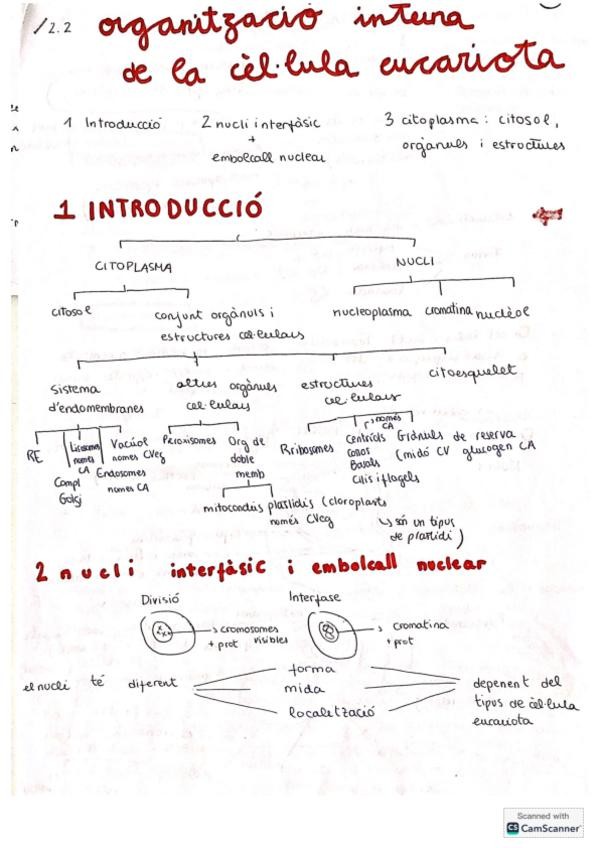 /2.2 organització interna
de la cèl·lula eucariota
1 Introducció 2 nucli interfàsic 3 citoplasma: citosol,
+ orgànuls i estructures
embolcall nuclear
1 INTRODUCCIÓ
CITOPLASMA NUCLI
citosol conjunt orgànuls i nucleoplasma cromatina nuclèol
estructures cel·lulars
Sistema altres orgànuls estructures citoesquelet
d'endomembranes cel·lulars cel·lulars
només
CA
RE Lisosomes Vacúol Peroxisomes Org de Rribosomes Centríols Grànuls de reserva
només nomes CVeg doble Cossos (midó CV glucogen CA
CA Endosomes memb Basals
Compl nomes CA Cilis i flagels
Golgi
mitocondris plastidis (cloroplasts
només CVeg ↳ són un tipus
de plastidi)
2 nucli interfàsic i embolcall nuclear
Divisió Interfase
→ cromosomes → cromatina
+ prot visibles + prot
forma
el nucli té diferent mida depenent del
localització tipus de cèl·lula
eucariota
Scanned with
CS CamScanner